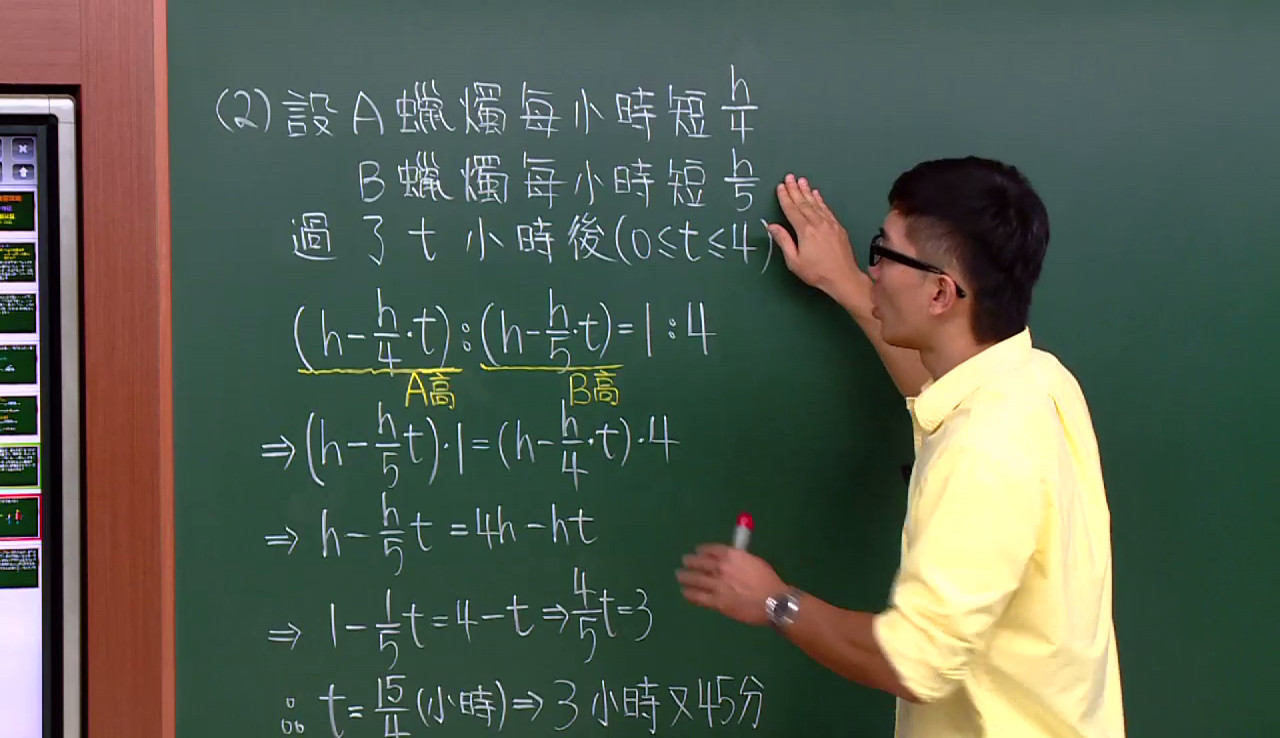 (2)設A蠟燭每小時短h/4
B蠟燭每小時短h/5
過了t小時後(0≤t≤4)
(h-h/4·t):(h-h/5·t)=1:4
A高 B高
⇒(h-h/5t)·1=(h-h/4·t)·4
⇒h-h/5t=4h-ht
⇒1-1/5t=4-t⇒4/5t=3
∴t=15/4(小時)⇒3小時又45分